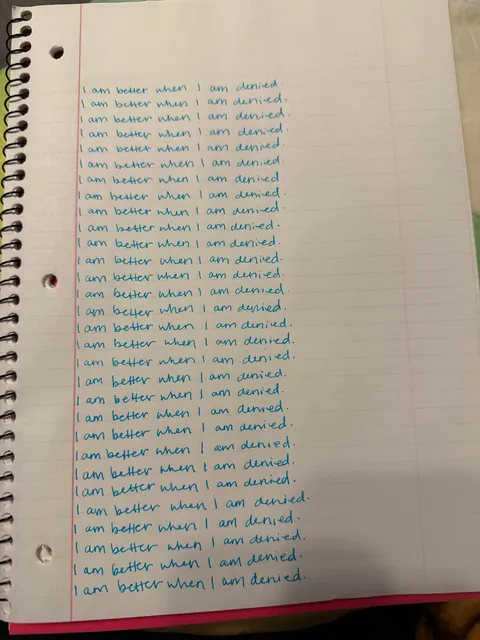 I am better when I am denied.
I am better when I am denied.
I am better when I am denied.
I am better when I am denied.
I am better when I am denied.
I am better when I am denied.
I am better when I am denied
I am better when I am denied.
I am better when I am denied.
I am better when I am denied.
I am better when I am denied.
I am better when I am denied.
I am better when I am denied.
I am better when I am denied.
I am better when I am denied.
I am better when I am denied.
I am better when I am denied.
I am better when I am denied.
I am better when I am denied.
I am better when I am denied.
I am better when I am denied.
I am better when I am denied.
I am better when I am denied.
I am better when I am denied.
I am better when I am denied.
I am better when I am denied.
I am better when I am denied.
I am better when I am denied.
I am better when I am denied.
I am better when I am denied.